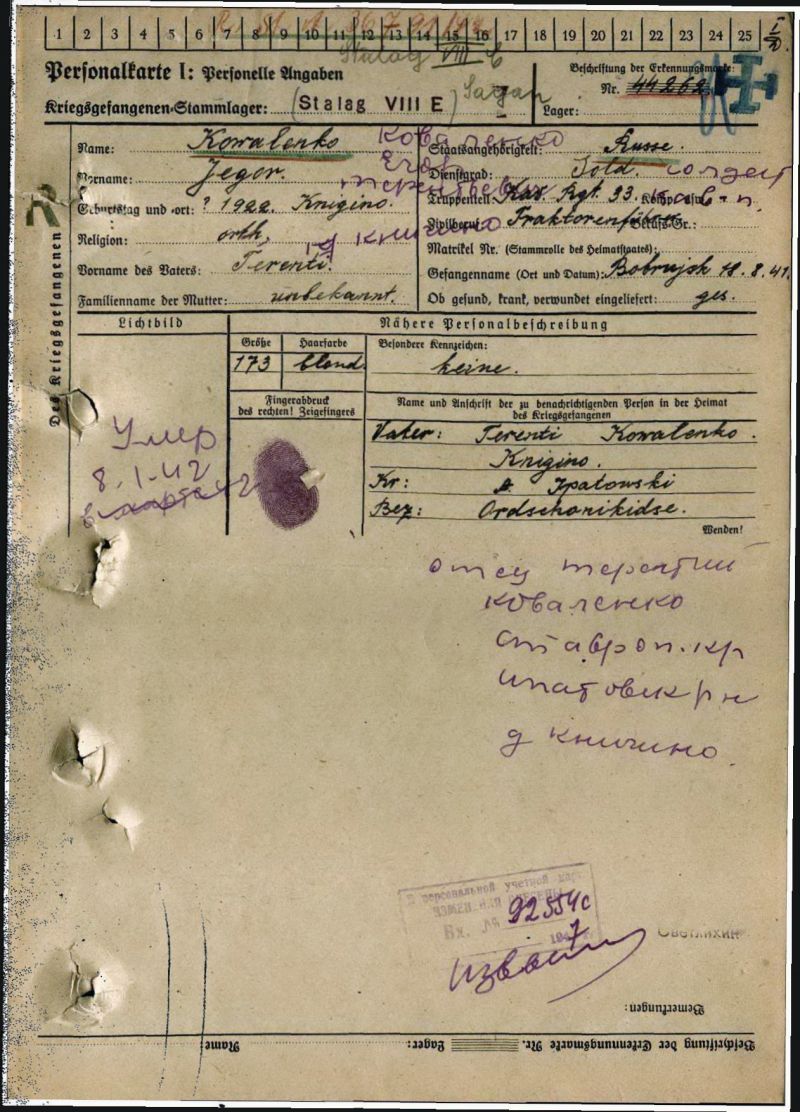 1 2 3 4 5 6 7 8 9 10 11 12 13 14 15 16 17 18 19 20 21 22 23 24 25
Stalag VIII C
Personalkarte I: Personelle Angaben
Kriegsgefangenen-Stammlager: (Stalag VIII E) Sagan
Beschriftung der Erkennungsmarke:
Nr. 44262
Lager:
Des Kriegsgefangenen
Name: Kowalenko
Коваленко
Vorname: Jegor.
Егор
Терентьевич
Geburtstag und -ort: ? 1922. Knigino.
Religion: orth.
д Книгино
Vorname des Vaters: Terenti.
Familienname der Mutter: unbekannt.
Staatsangehörigkeit: Russe.
Dienstgrad: Sold. солдат
Truppenteil: Kav. Rgt. 33. Kompanie кав-п.
Zivilberuf: Traktorenführer Berufs-Gr.:
Matrikel Nr. (Stammrolle des Heimatstaates):
Gefangennahme (Ort und Datum): Bobrujsk 18.8.41.
Ob gesund, krank, verwundet eingeliefert: ges.
Lichtbild
Умер
8.1.42
Nähere Personalbeschreibung
Größe Haarfarbe Besondere Kennzeichen:
173 blond. keine.
Fingerabdruck
des rechten! Zeigefingers
Name und Anschrift der zu benachrichtigenden Person in der Heimat
des Kriegsgefangenen
Vater: Terenti Kowalenko.
Knigino.
Kr: Ipatowski
Bez: Ordschonikidse.
Wenden!
отец Терентий
Коваленко
Ставроп. кр
Ипатовск рн
д Книгино.
В персональной учетной кар.
ИЗМЕНЕНИЯ ВНЕСЕНЫ
Вх. № 92554с
1947
Светлихин
Bemerkungen:
Name: Lager: Beschriftung der Erkennungsmarke Nr.